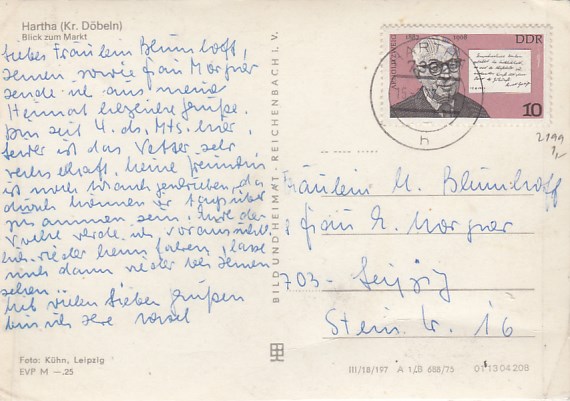 Hartha (Kr. Döbeln)
Blick zum Markt
Liebes Fräulein Blumhoff,
Ihnen, sowie Frau Morgner
sende ich aus meiner
Heimat herzliche Grüße.
Bin seit 4. ds. Mts. hier,
leider ist das Wetter sehr
meine Freundin
ist noch
durch können wir tagsüber
zusammen sein.
Woche werde ich
wieder heim fahren, lasse
mich dann wieder bei Ihnen
sehen.
Mit vielen lieben Grüßen
bin ich Ihre
Foto: Kühn, Leipzig
EVP M —.25
BILD UND HEIMAT · REICHENBACH i. V.
ARNOLD ZWEIG 1887 1968
DDR
10
h
2199
1,-
Fräulein M. Blumhoff
Frau E. Morgner
703 - Leipzig
Steinstr. 16
III/18/197 A 1/B 688/75 01 13 04 208